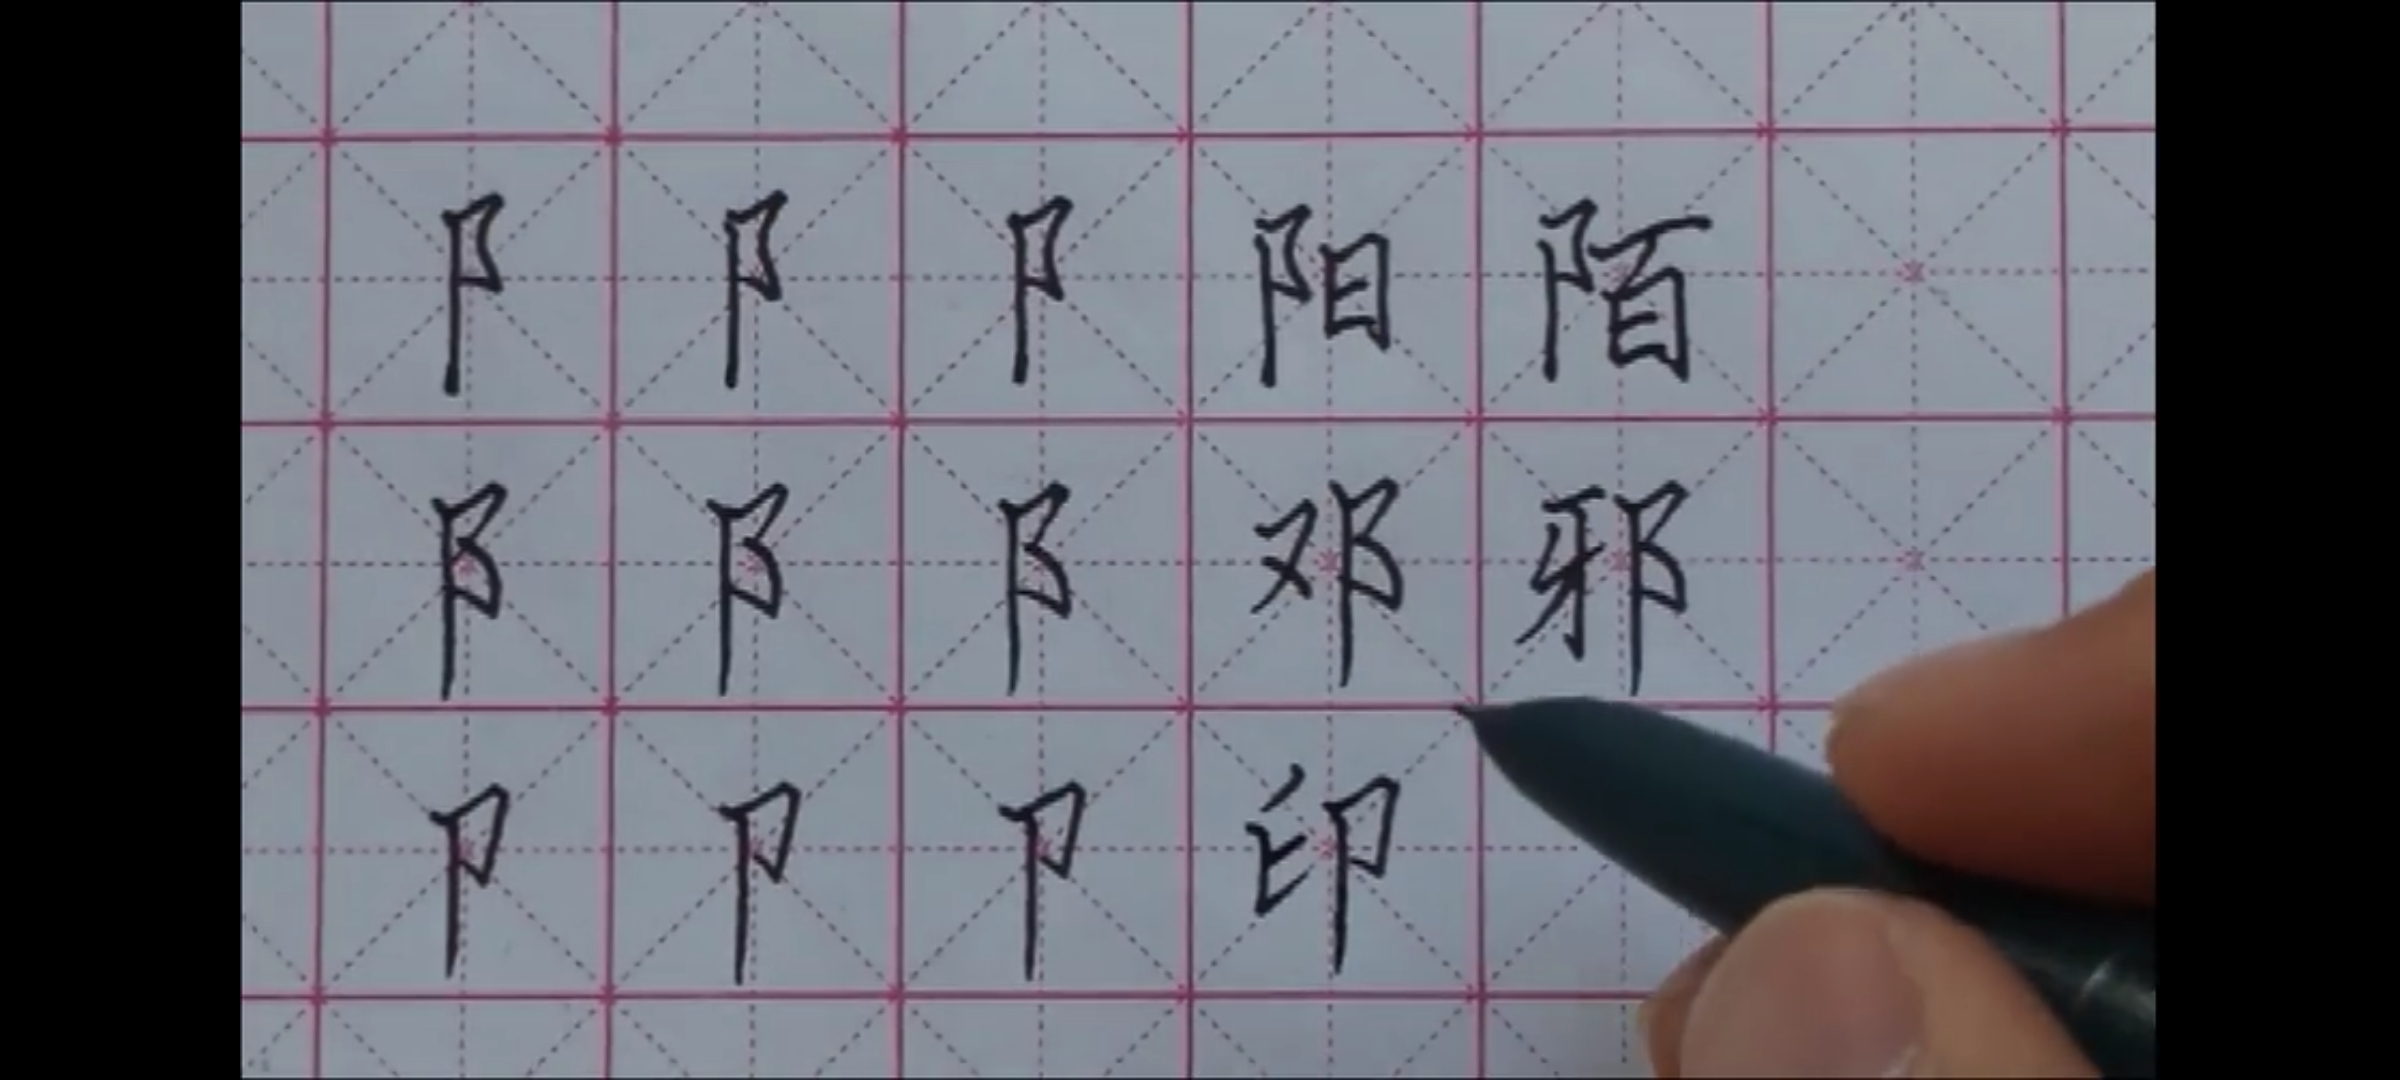 阝 阝 阝 阳 陌
阝 阝 阝 邓 邪
卩 卩 卩 印